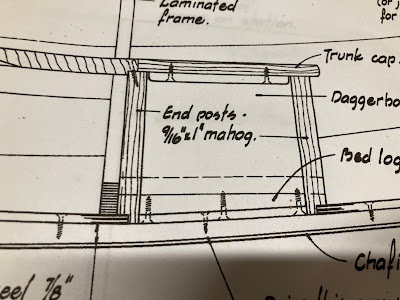 Laminated
frame.
(or
for
Trunk cap.
End posts.
9/16"x1" mahog.
Daggerbo
Bed log
Chafi
eel 7/8"